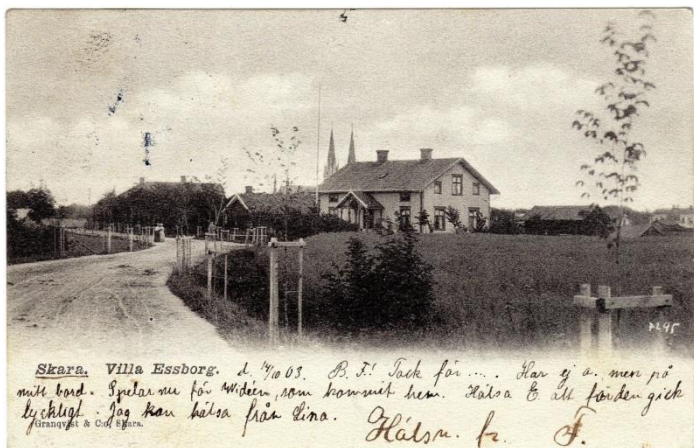 AL 95
Skara. Villa Essborg. d. 14/10 03. B. F.! Tack för .... . Har ej a. men på
mitt bord. Spelar nu för Widéen, som kommit hem. Hälsa E att färden gick
lyckligt. Jag kan hälsa från Lina.
Granqvist & C:o, Skara.
Hälsn. fr. F.